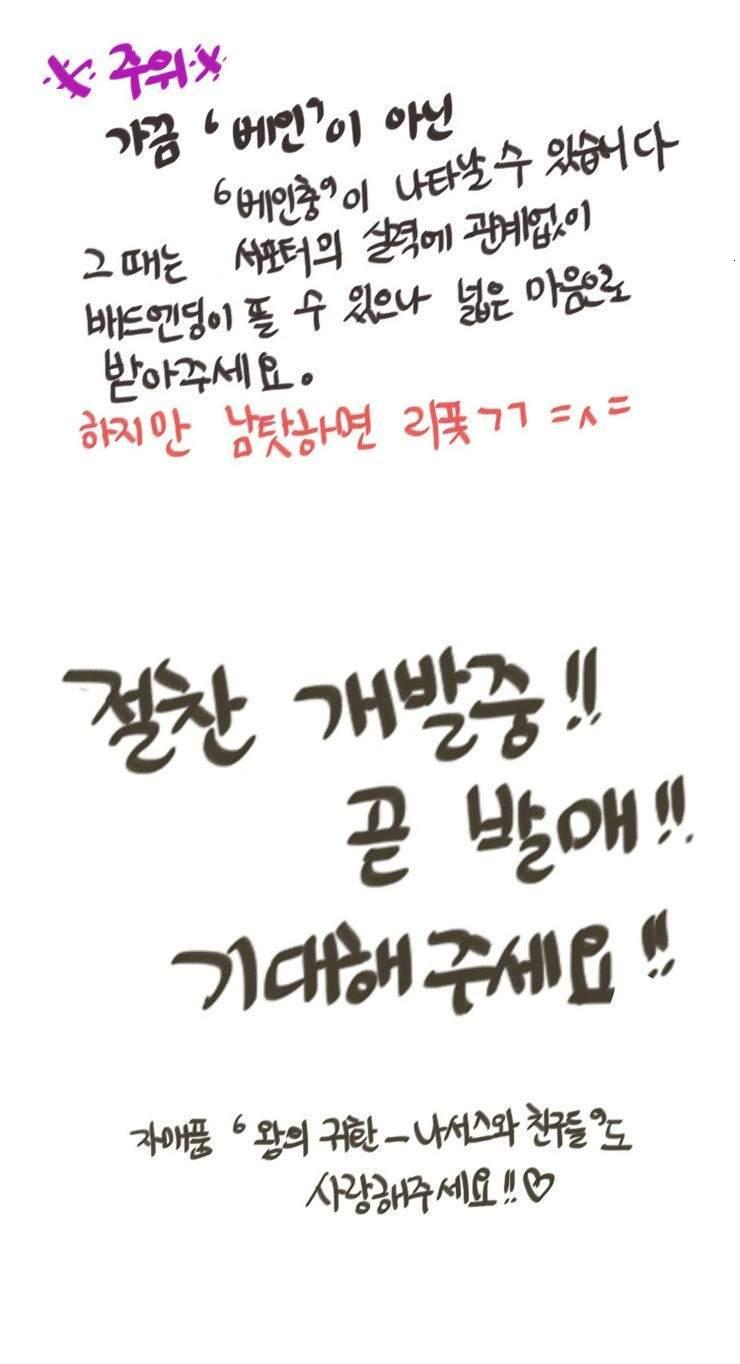 ※주위※
가끔 '베인'이 아닌
'베인충'이 나타날 수 있습니다
그 때는 서포터의 실력에 관계없이
배드엔딩이 뜰 수 있으나 넓은 마음으로
받아주세요.
하지만 남탓하면 리폿ㄱㄱ =ㅅ=
절찬 개발중!!
곧 발매!!
기대해주세요!!
자매품 '왕의 귀환-나서스와 친구들'도
사랑해주세요!!♡